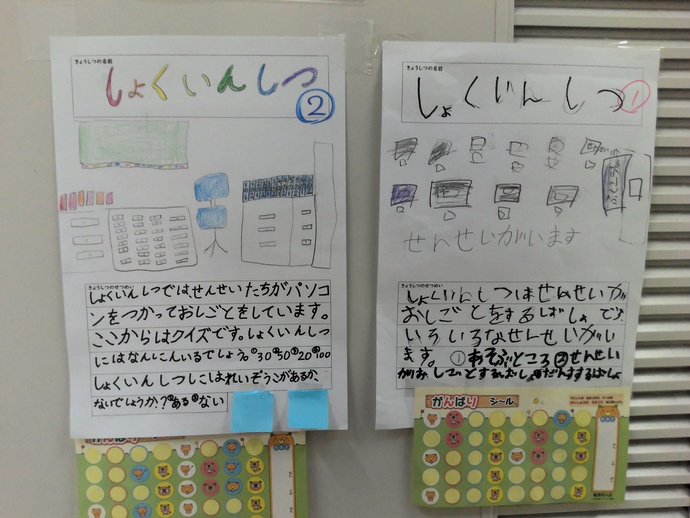 きょうしつの名前
しょくいんしつ
②
きょうしつのせつめい
しょくいんしつでは、せんせいたちがパソコ
ンをつかっておしごとをしています。
ここからはクイズです。しょくいんしつ
にはなんにんいるでしょう。①30②50③20④100
しょくいんしつにはれいぞうこがあるか、
ないでしょうか?①ある②ない
きょうしつの名前
しょくいんしつ
①
せんせいがいます
きょうしつのせつめい
しょくいんしつはせんせいが
おしごとをするばしょです。
いろいろなせんせいがい
ます。①あそぶところ②せんせい
がおしごとするばしょ
がんばり シール
がんばり シール